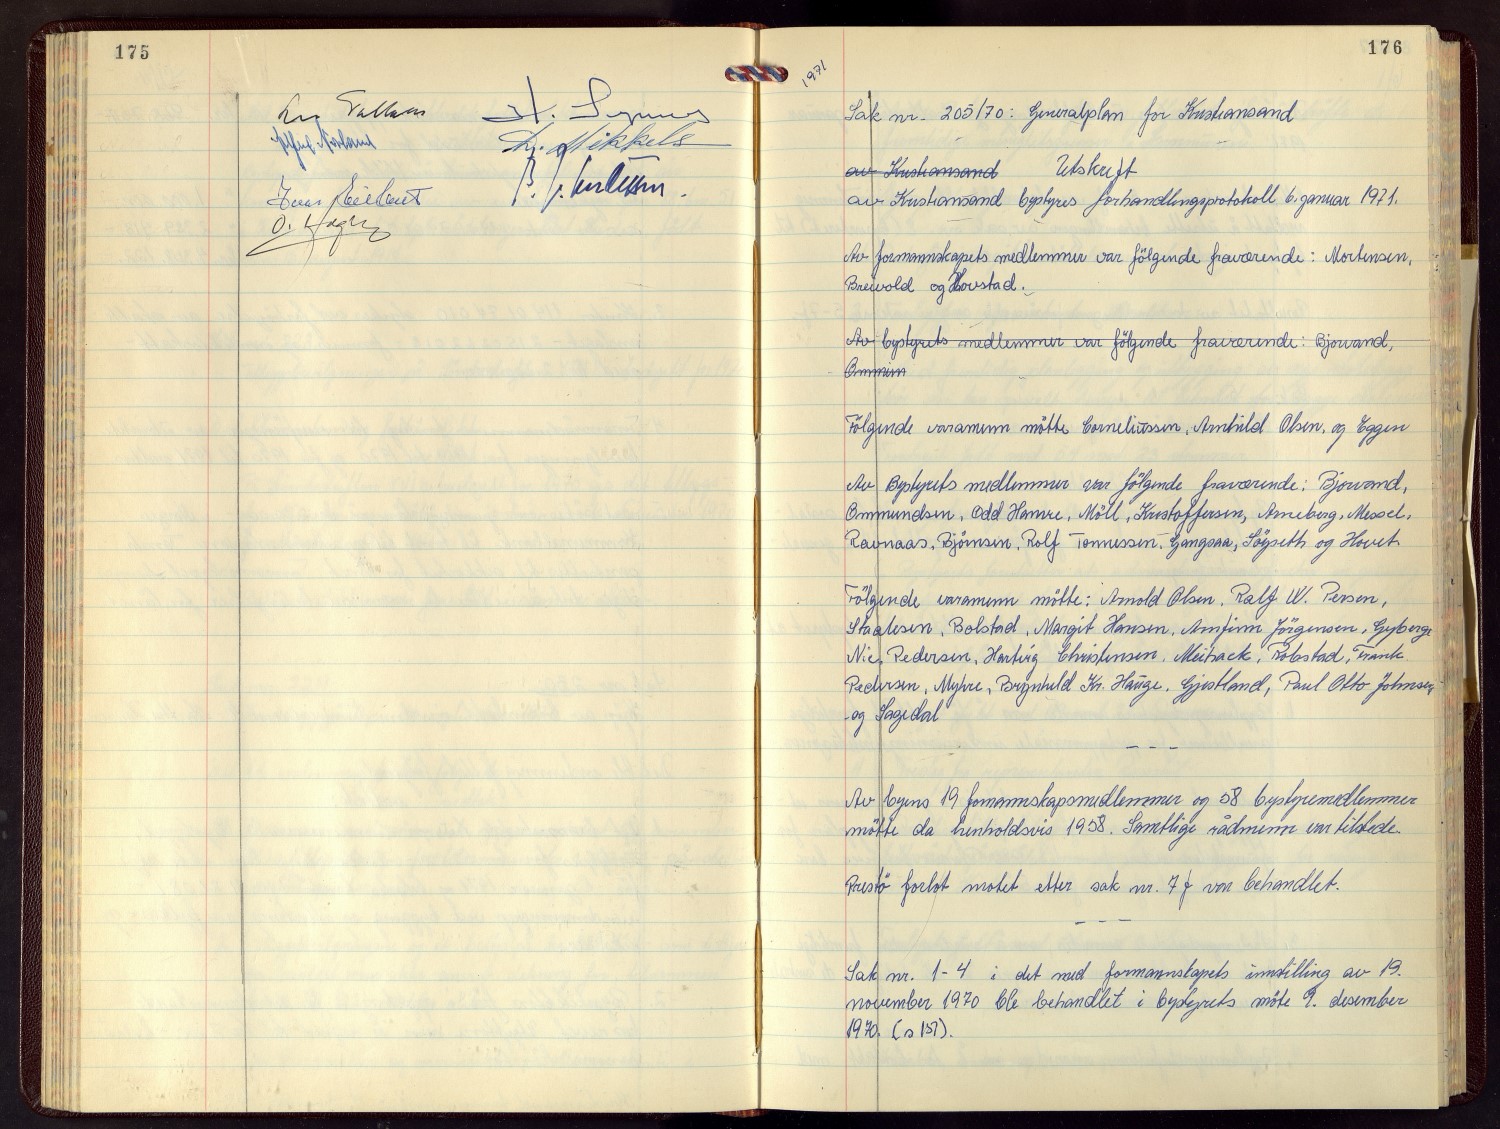 175
1971
176
Sak nr. 205/70: Generalplan for Kristiansand
av Kristiansand Utskrift
av Kristiansand bystyres forhandlingsprotokoll 6. januar 1971.
Av formannskapets medlemmer var fölgende fraværende: Mortensen,
Breivold og Hovstad.
Av bystyrets medlemmer var fölgende fraværende: Bjorvand,
Fölgende varamenn mötte Corneliussen, Arnhild Olsen, og Eggen
Av Bystyrets medlemmer var fölgende fraværende: Bjorvand,
Ommundsen, Odd Hamre, Möll, Kristoffersen, Arneberg, Messel,
Ravnaas, Björnsen, Rolf Tönnessen, Gangsaa, Lögseth og Hovet
Fölgende varamenn mötte: Arnold Olsen, Ralf W. Persen,
Staalesen, Bolstad, Margit Hansen, Arnfinn Jörgensen, Gyberg,
Nic. Pedersen, Hartvig Christensen, Meisack, Robstad, Frank
Pedersen, Myhre, Brynhild Kr. Hauge, Gjestland, Paul Otto Johnsen
og Sagedal
- - -
Av byens 19 formannskapsmedlemmer og 58 bystyremedlemmer
mötte da henholdsvis 19 58. Samtlige rådmenn var tilstede.
Prestö forlot motet etter sak nr. 7 f var behandlet.
- - -
Sak nr. 1-4 i det med formannskapets innstilling av 19.
november 1970 ble behandlet i bystyrets möte 9. desember
1970. (s 157).